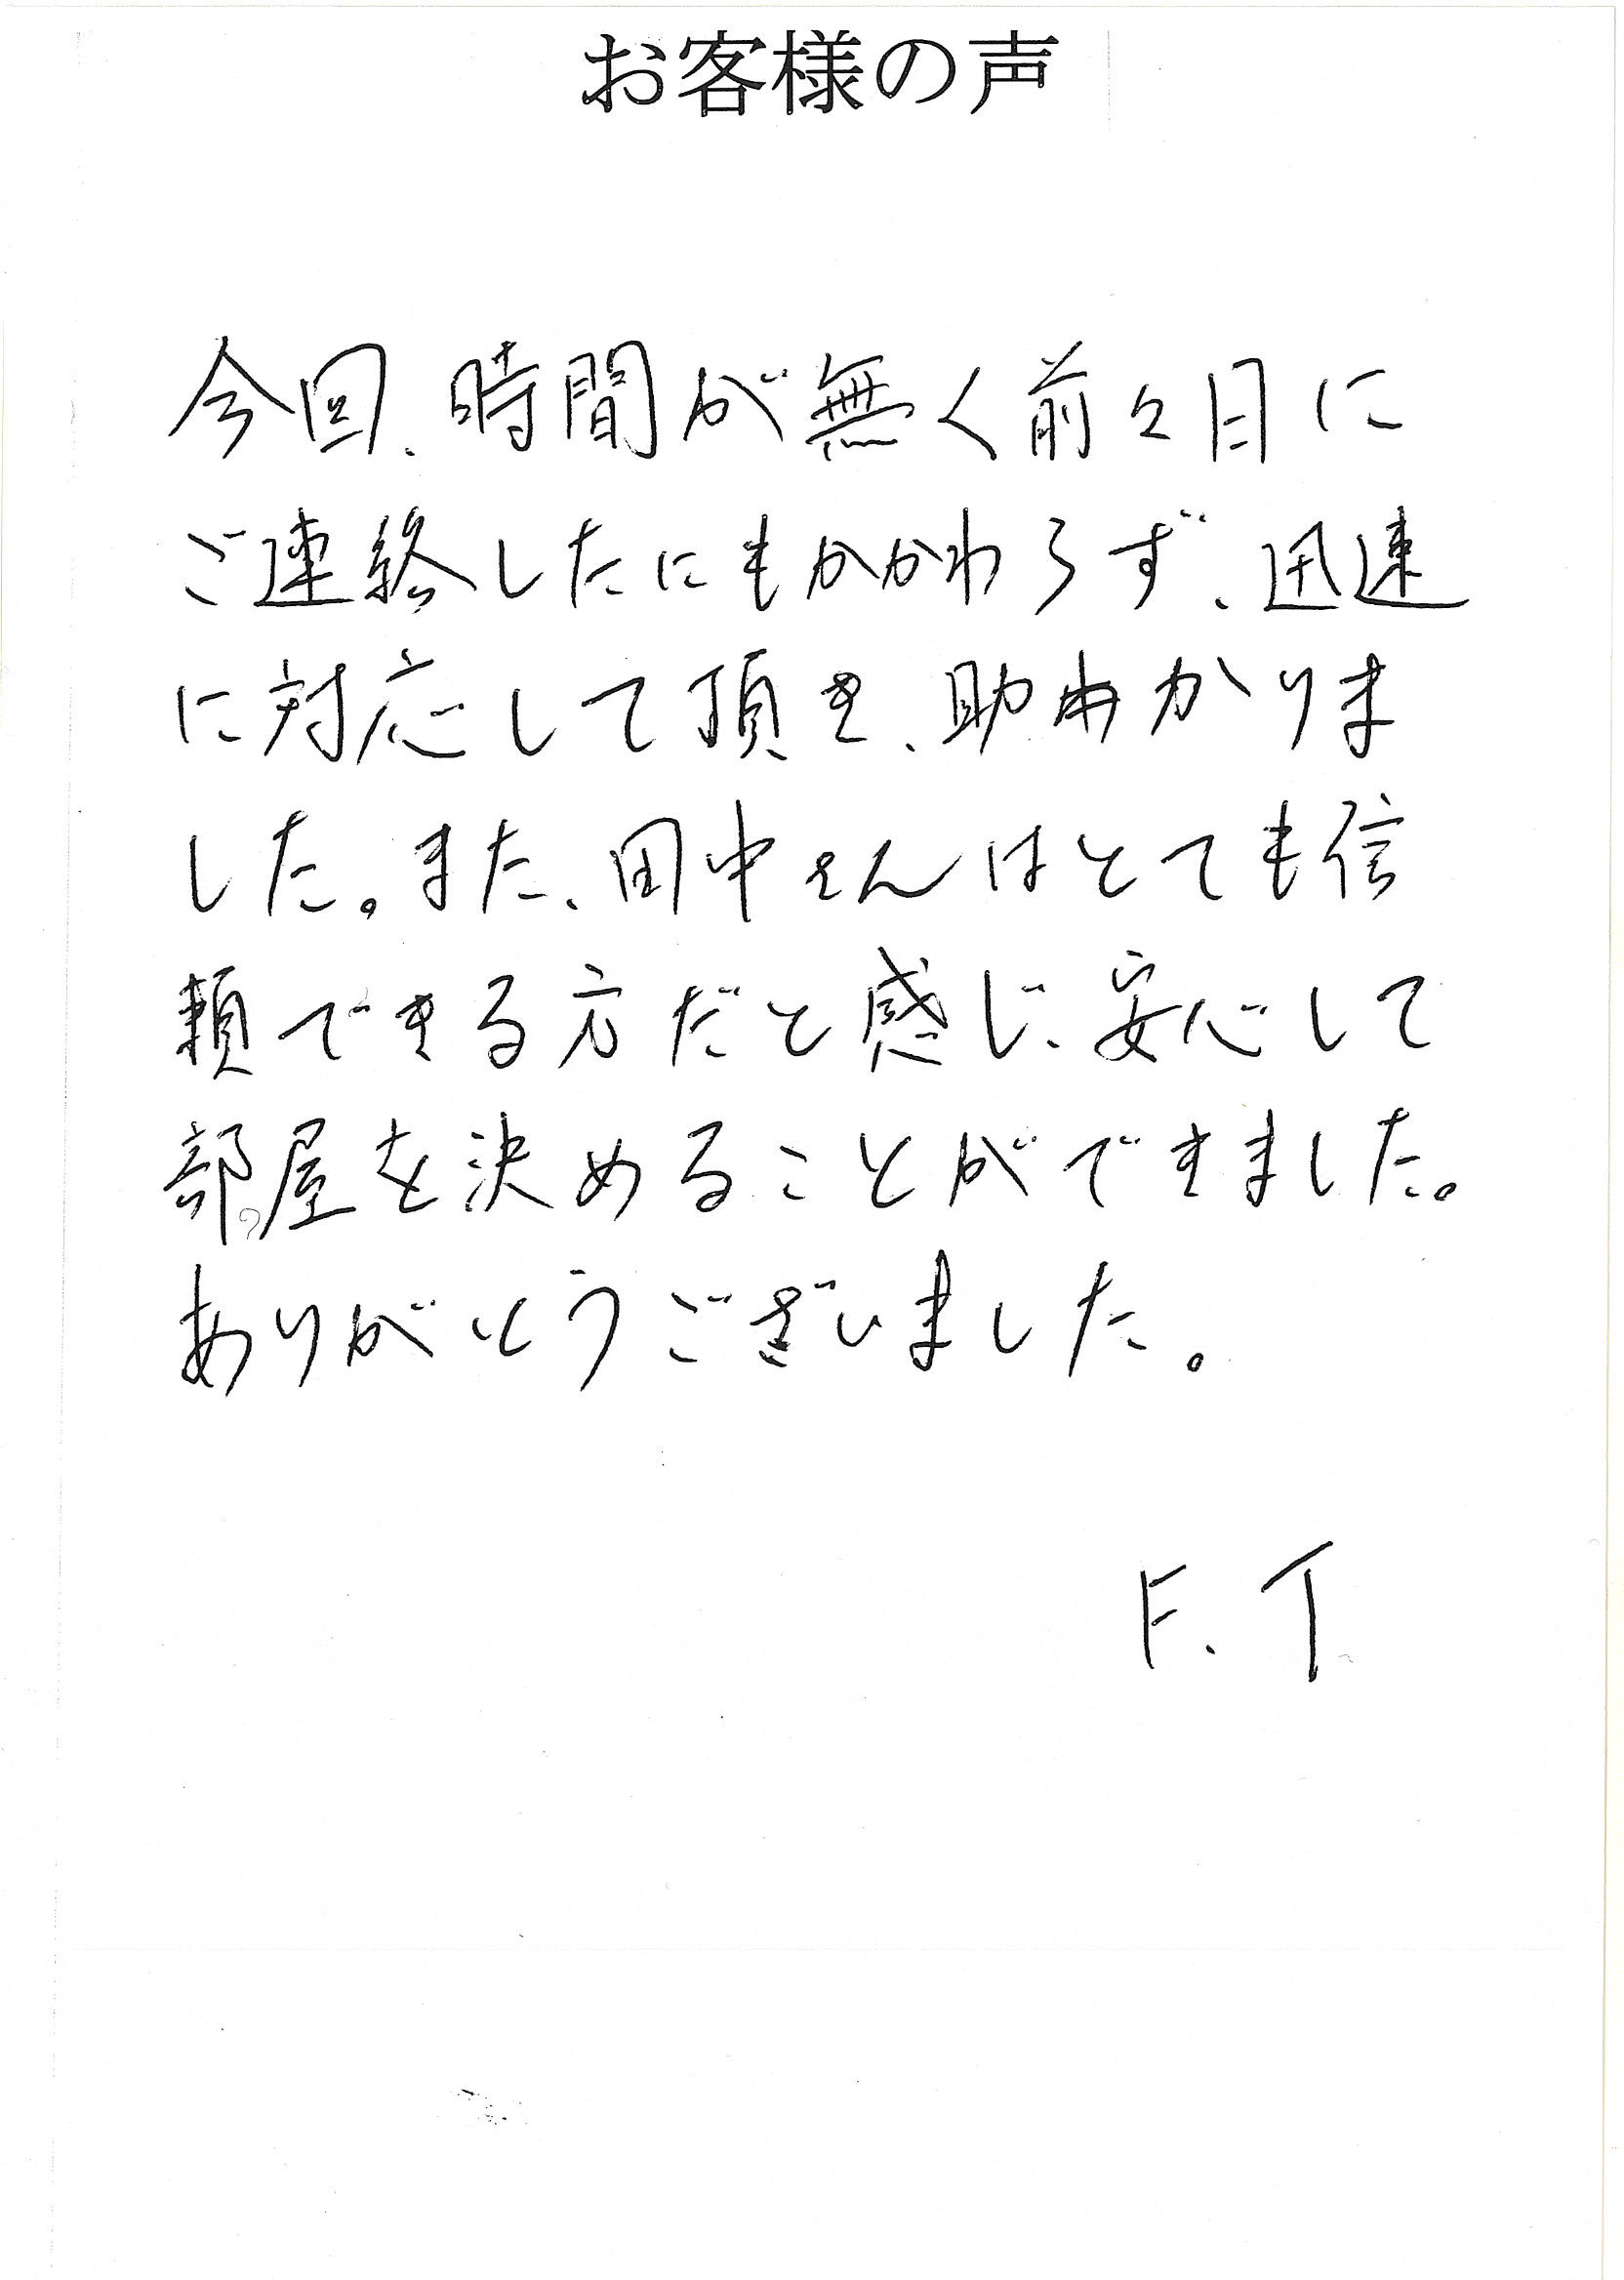 お客様の声
今回、時間が無く前々日に
ご連絡したにもかかわらず、迅速
に対応して頂き、助かりま
した。また、田中さんはとても信
頼できる方だと感じ、安心して
部屋を決めることができました。
ありがとうございました。
F.T